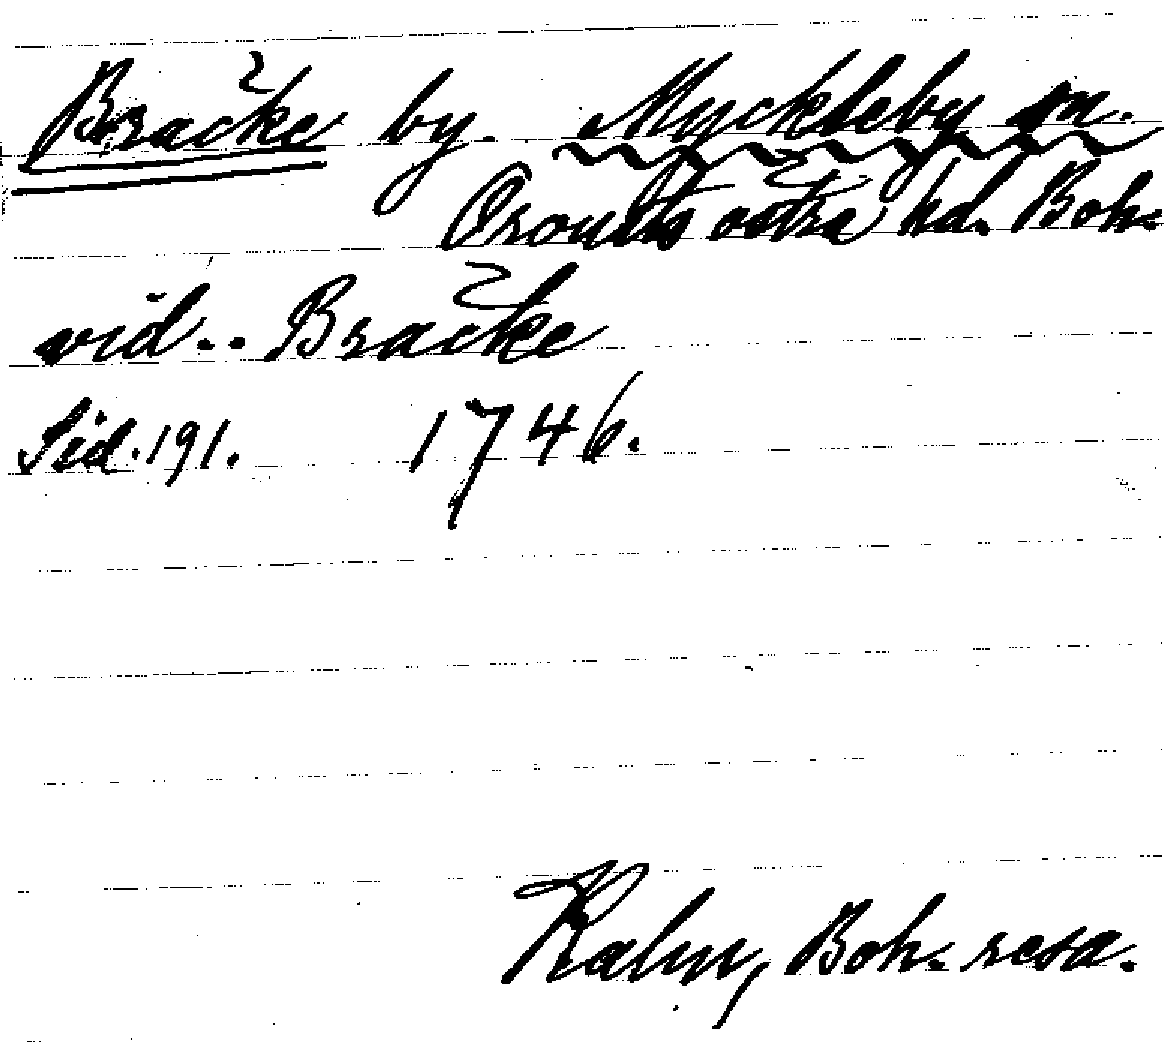 Bracke by. Myckleby sn.
Orousts östra hd. Boh.
vid.. Bracke
Sid. 191. 1746.
Kalm, Boh. resa.